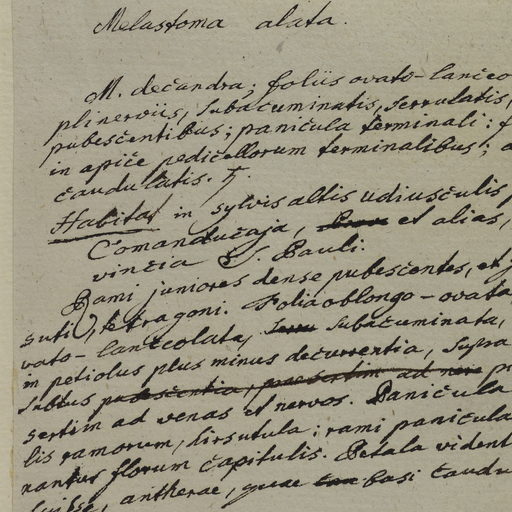 Melastoma alata.
M. decandra; foliis ovato-lanceo
plinerviis, subacuminatis, serrulatis,
pubescentibus; panicula terminali: f
in apice pedicellorum terminalibus; a
caudulatis. ♄.
Habitat in sylvis altis udiusculis
Comanducaja, et alias,
vincia S. Pauli.
Rami juniores dense pubescentes, et
suti, tetragoni. Folia oblongo-ovata
vato-lanceolata, subacuminata,
in petiolus plus minus decurrentia, supra
subtus pubescentia, praesertim ad ner pr
sertim ad venas et nervos. Panicula
lis ramorum, hirsutula; rami panicula
nantur florum capitulis. Petala vident
fuisse, antherae, quae basi caudu